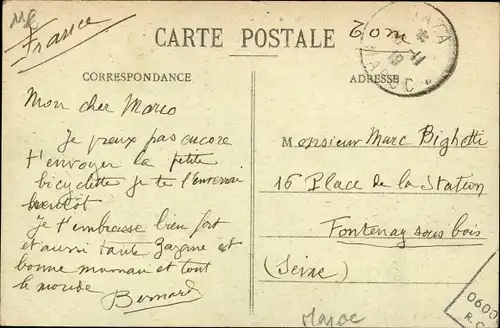 France
CARTE POSTALE
CORRESPONDANCE
ADRESSE
MAROC
Mon cher Marco
Je peux pas encore
t'envoyer la petite
bicyclette je te l'enverrai
bientôt
Je t'embrasse bien fort
et aussi tante Zazane et
bonne maman et tout
le monde
Bernard
Monsieur Marc Bighetti
16 Place de la Station
Fontenay sous bois
(Seine)
Maroc
0600